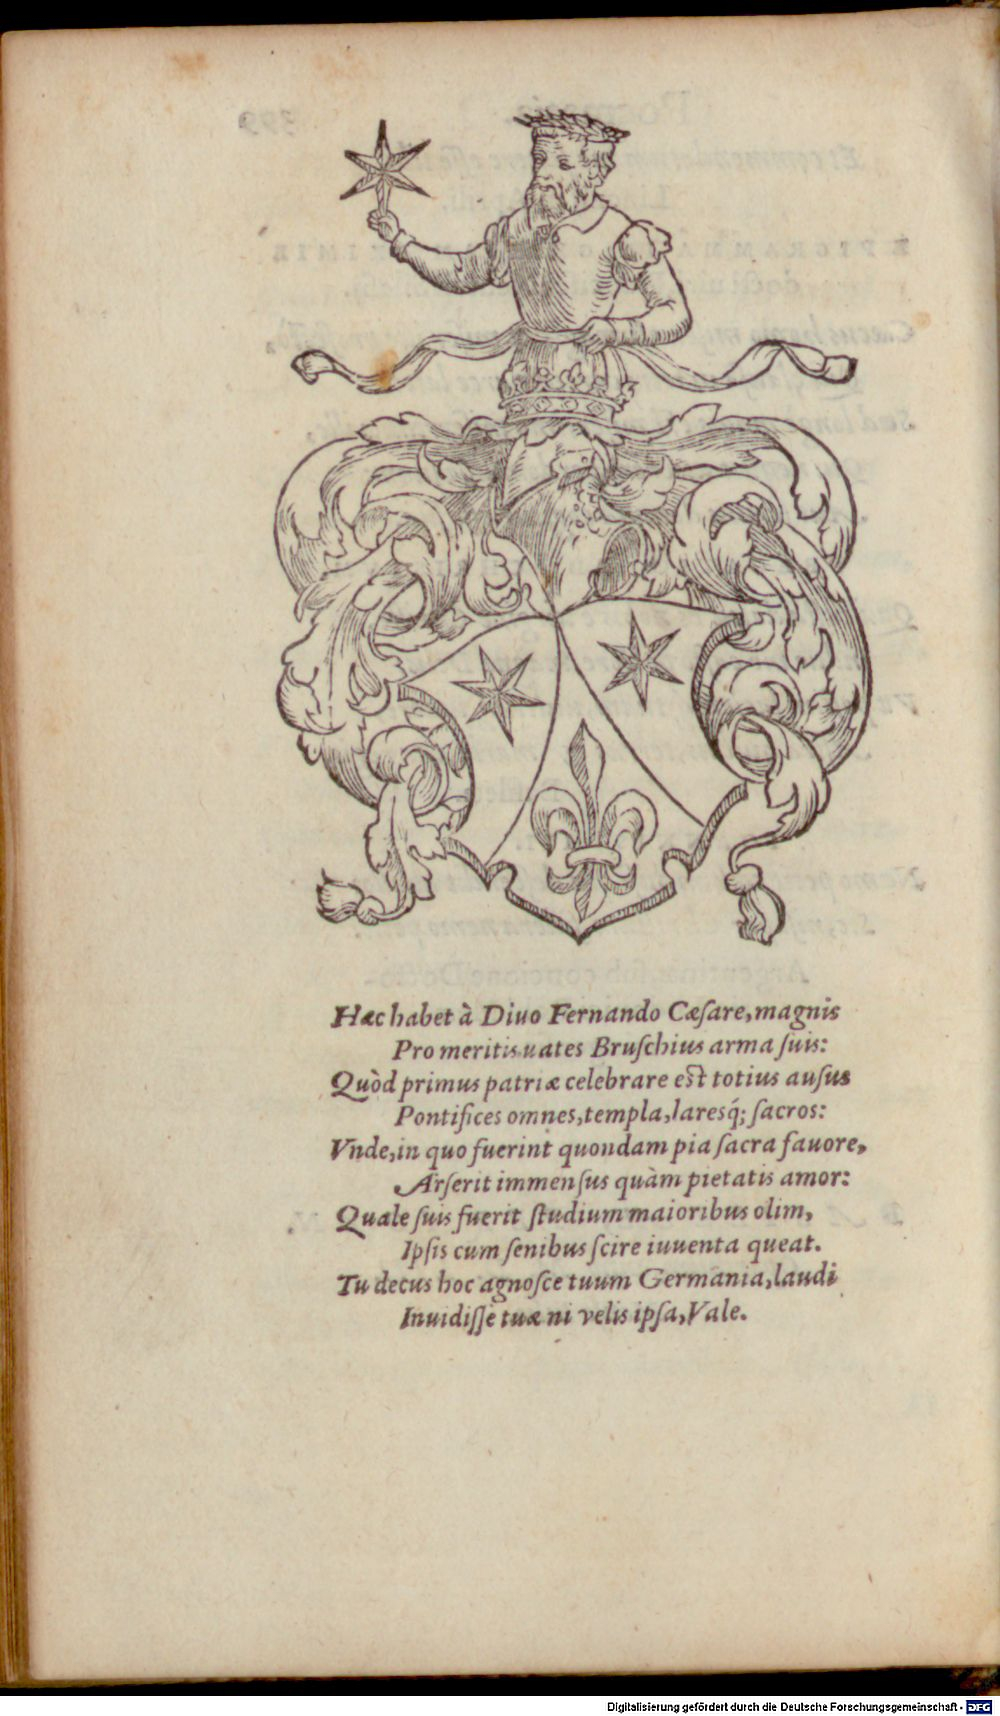 Hæc habet à Diuo Fernando Cæſare, magnis
Pro meritis uates Bruſchius arma ſuis:
Quòd primus patriæ celebrare eſt totius auſus
Pontifices omnes, templa, laresq́; ſacros:
Vnde, in quo fuerint quondam pia ſacra fauore,
Arſerit immenſus quàm pietatis amor:
Quale ſuis fuerit ſtudium maioribus olim,
Ipſis cum ſenibus ſcire iuuenta queat.
Tu decus hoc agnoſce tuum Germania, laudi
Inuidiſſe tuæ ni velis ipſa, Vale.
Digitalisierung gefördert durch die Deutsche Forschungsgemeinschaft - DFG